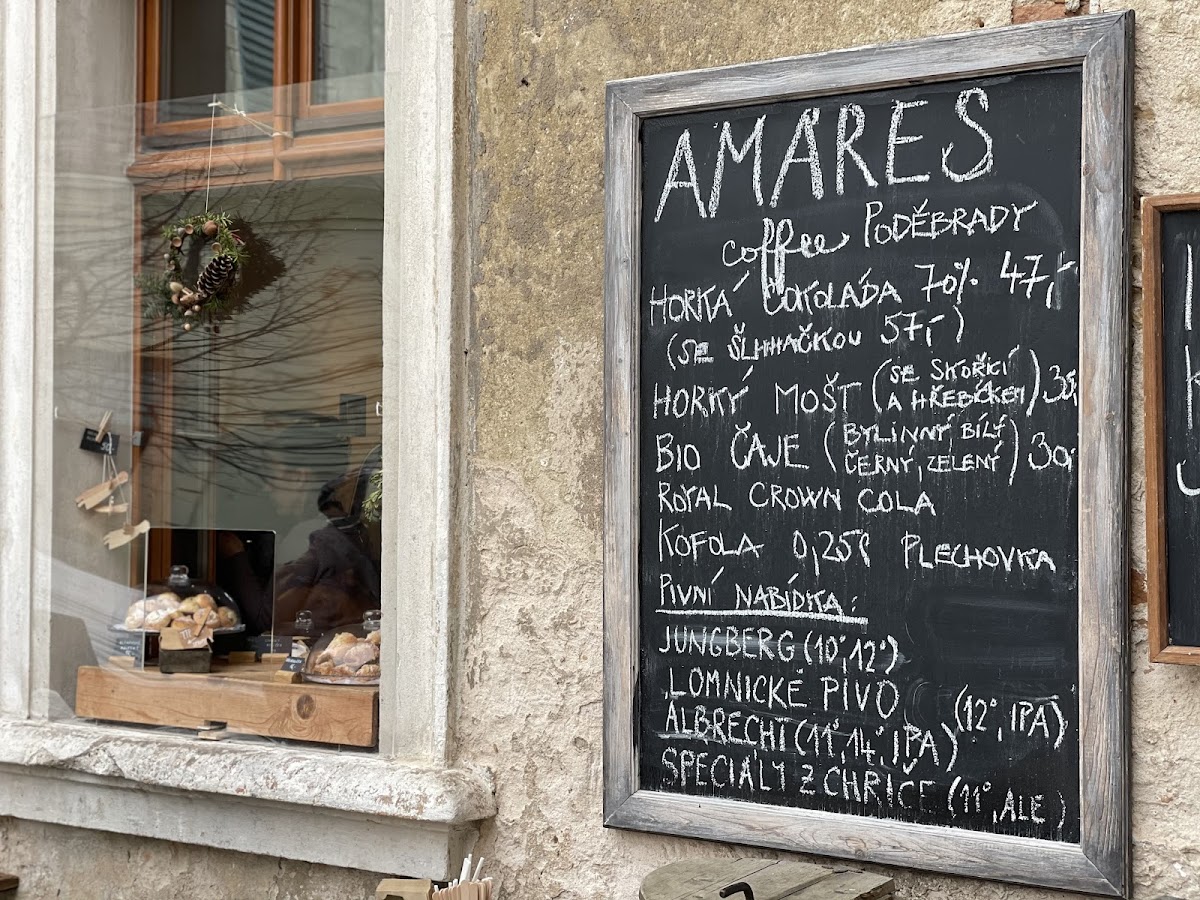 AMARES
coffee PODĚBRADY
HORKÁ ČOKOLÁDA 70% 47,-
(SE ŠLHAČKOU 57,-)
HORKÝ MOŠT (SE SKOŘICÍ
A HŘEBÍČKEM) 30,-
BIO ČAJE (BYLINNÝ, BÍLÝ
ČERNÝ, ZELENÝ) 30,-
ROYAL CROWN COLA
KOFOLA 0,25l PLECHOVKA
PIVNÍ NABÍDKA:
JUNGBERG (10°, 12°)
LOMNICKÉ PIVO
(12°, IPA)
ALBRECHT (11°, 14°, IPA)
SPECIÁLY Z CHŘÍČE (11°, ALE)